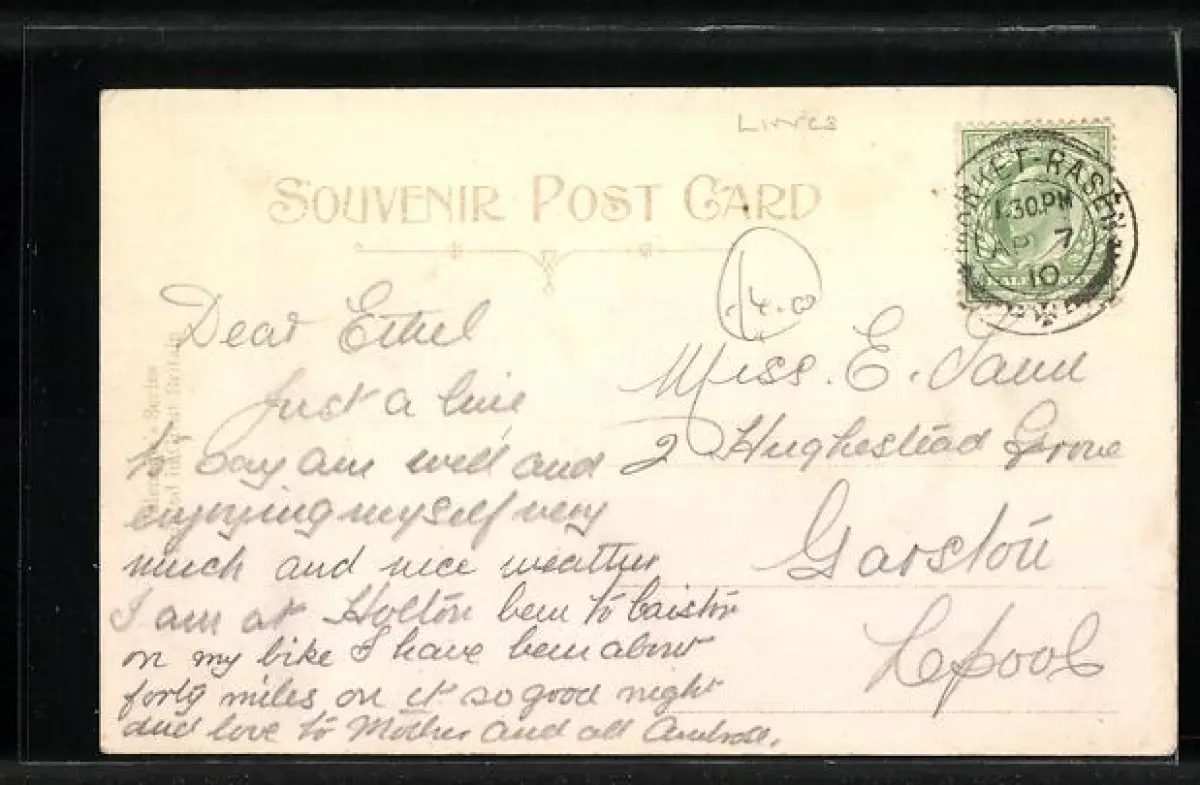 Lincs
SOUVENIR POST CARD
MARKET-RASEN
1.30.PM
AP 7
10
Dear Ethel
Just a line
to say am well and
enjoying myself very
much and nice weather
I am at Holton been to Caistor
on my bike I have been about
forty miles on it so good night
and love to Mother and all Ambrose.
Miss. E.
2 Hughestead Grove
Garston
L'pool
Series